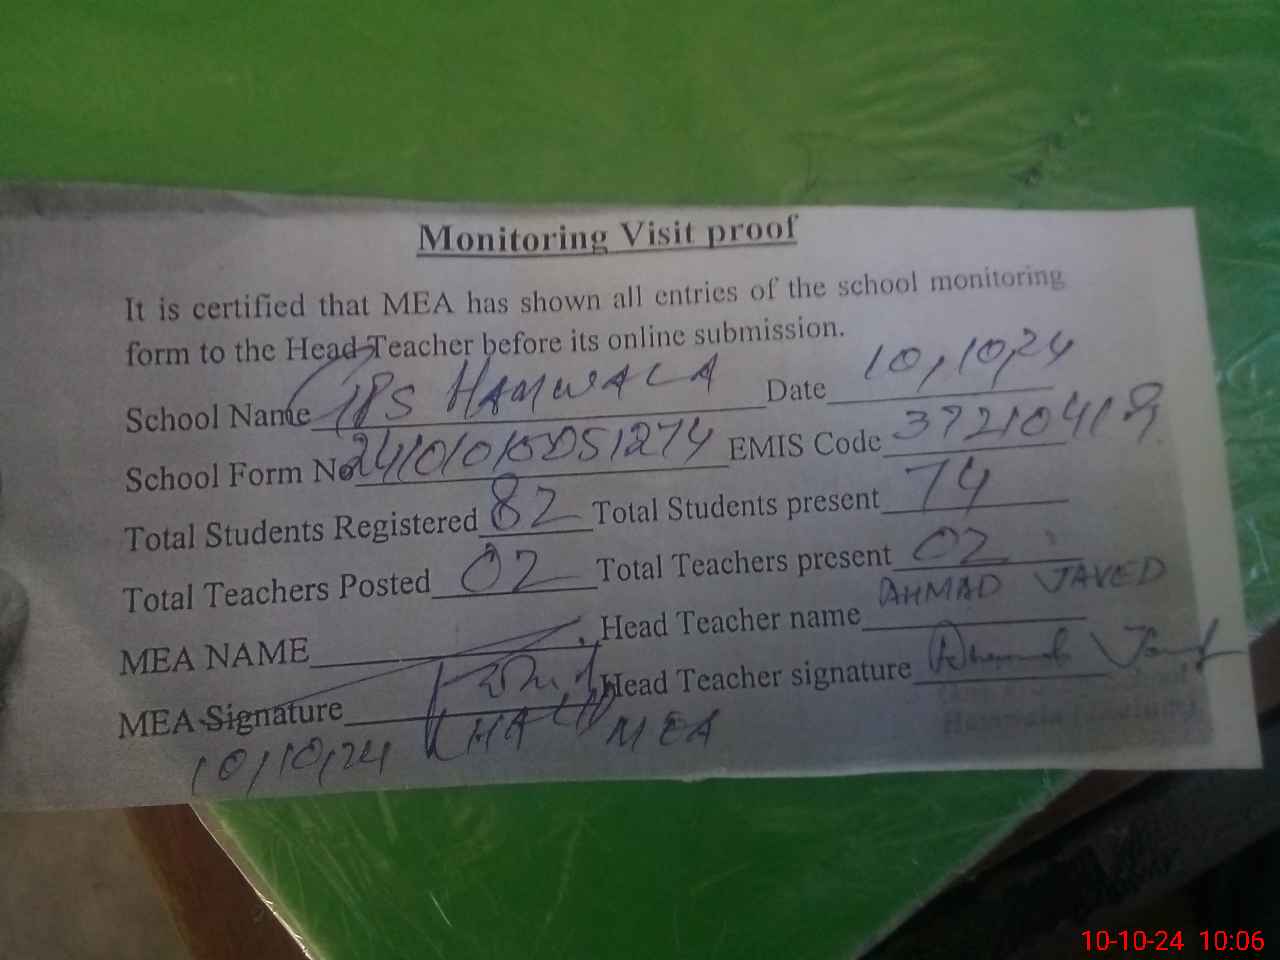 Monitoring Visit proof
It is certified that MEA has shown all entries of the school monitoring
form to the Head Teacher before its online submission.
School Name GPS HAMWALA Date 10,10,24
School Form No 24101010051274 EMIS Code 37210419
Total Students Registered 82 Total Students present 74
Total Teachers Posted 02 Total Teachers present 02
MEA NAME Head Teacher name AHMAD JAVED
MEA Signature Head Teacher signature Ahmad Javed
10/10/24 KHALID MEA
10-10-24 10:06